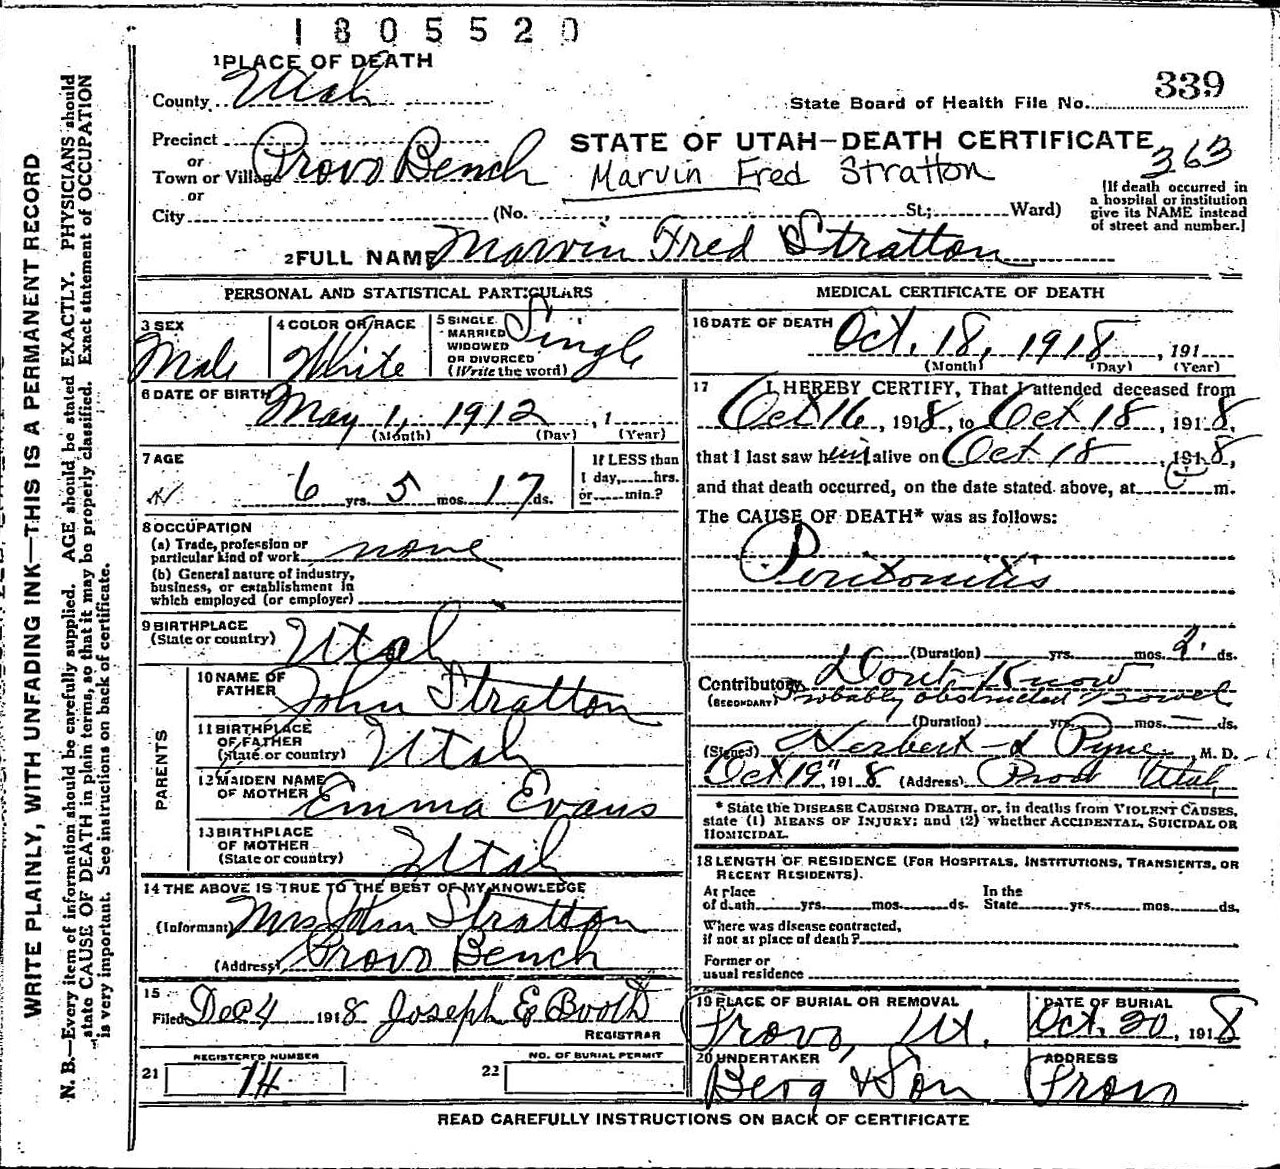 1805520
1 PLACE OF DEATH
County Utah
State Board of Health File No. 339
Precinct
or
Town or Village Provo Bench
or
City (No. , St.; Ward)
STATE OF UTAH—DEATH CERTIFICATE
363
Marvin Fred Stratton
[If death occurred in
a hospital or institution
give its NAME instead
of street and number.]
2 FULL NAME Marvin Fred Stratton
PERSONAL AND STATISTICAL PARTICULARS
3 SEX
Male
4 COLOR OR RACE
White
5 SINGLE
MARRIED
WIDOWED
OR DIVORCED
(Write the word)
Single
6 DATE OF BIRTH
May 1, 1912 , 1
(Month) (Day) (Year)
7 AGE
6 yrs. 5 mos. 17 ds.
If LESS than
1 day, hrs.
or min.?
8 OCCUPATION
(a) Trade, profession or
particular kind of work none
(b) General nature of industry,
business, or establishment in
which employed (or employer)
9 BIRTHPLACE
(State or country) Utah
PARENTS
10 NAME OF
FATHER John Stratton
11 BIRTHPLACE
OF FATHER
(State or country) Utah
12 MAIDEN NAME
OF MOTHER Emma Evans
13 BIRTHPLACE
OF MOTHER
(State or country) Utah
14 THE ABOVE IS TRUE TO THE BEST OF MY KNOWLEDGE
(Informant) Mrs John Stratton
(Address) Provo Bench
15
Filed Dec 4 1918 Joseph E Booth
REGISTRAR
21 REGISTERED NUMBER
74
22 NO. OF BURIAL PERMIT
MEDICAL CERTIFICATE OF DEATH
16 DATE OF DEATH
Oct. 18, 1918 , 191
(Month) (Day) (Year)
17 I HEREBY CERTIFY, That I attended deceased from
Oct 16, 1918, to Oct 18 1918,
that I last saw him alive on Oct 18, 1918,
and that death occurred, on the date stated above, at m.
The CAUSE OF DEATH* was as follows:
Peritonitis
(Duration) yrs. mos. 2 ds.
Contributory Dont Know
(SECONDARY) Probably obstructed Bowel
(Duration) yrs. mos. — ds.
(Signed) Herbert S Pyne, M. D.
Oct 19" 1918 (Address) Provo Utah
* State the DISEASE CAUSING DEATH, or, in deaths from VIOLENT CAUSES,
state (1) MEANS OF INJURY; and (2) whether ACCIDENTAL, SUICIDAL OR
HOMICIDAL.
18 LENGTH OF RESIDENCE (FOR HOSPITALS, INSTITUTIONS, TRANSIENTS, OR
RECENT RESIDENTS).
At place
of death yrs. mos. ds.
In the
State yrs. mos. ds.
Where was disease contracted,
if not at place of death?
Former or
usual residence
19 PLACE OF BURIAL OR REMOVAL
Provo, Ut.
DATE OF BURIAL
Oct. 20, 1918
20 UNDERTAKER
Berg & Son
ADDRESS
Provo
READ CAREFULLY INSTRUCTIONS ON BACK OF CERTIFICATE
WRITE PLAINLY, WITH UNFADING INK—THIS IS A PERMANENT RECORD
N. B.—Every item of information should be carefully supplied. AGE should be stated EXACTLY. PHYSICIANS should
state CAUSE OF DEATH in plain terms, so that it may be properly classified. Exact statement of OCCUPATION
is very important. See instructions on back of certificate.